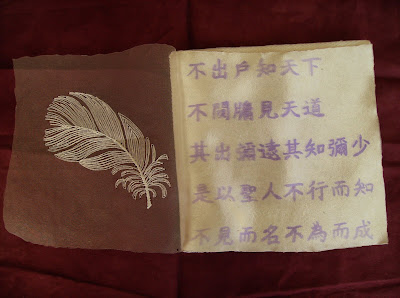 不出戶知天下
不闚牖見天道
其出彌遠其知彌少
是以聖人不行而知
不見而名不為而成